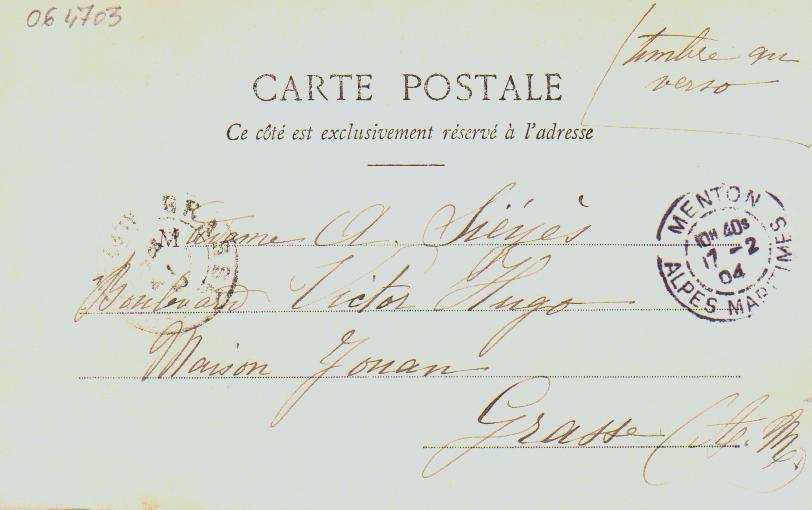 06 4703
timbre au
verso
CARTE POSTALE
Ce côté est exclusivement réservé à l'adresse
Madame A. Siéyès
Boulevard Victor Hugo
Maison Jouan
Grasse (A. M.)
GRASSE
MENTON
10H 40S
17 -2
04
ALPES MARITIMES